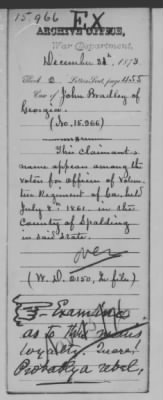 15966 Ex
ARCHIVE OFFICE,
War Department,
December 31st, 1873
Book 2 Letters Sent, page 455
Case of John Bradley of
Georgia.
(No. 15.966)
This claimant's
name appears among the
votes for officers of Volun-
teer Regiment of Ga. held
July 8th 1861. in the
County of Spalding
in said State.
over
(W. D. 2150, In file)
Examine
as to this man's
loyalty.
Probably a rebel.